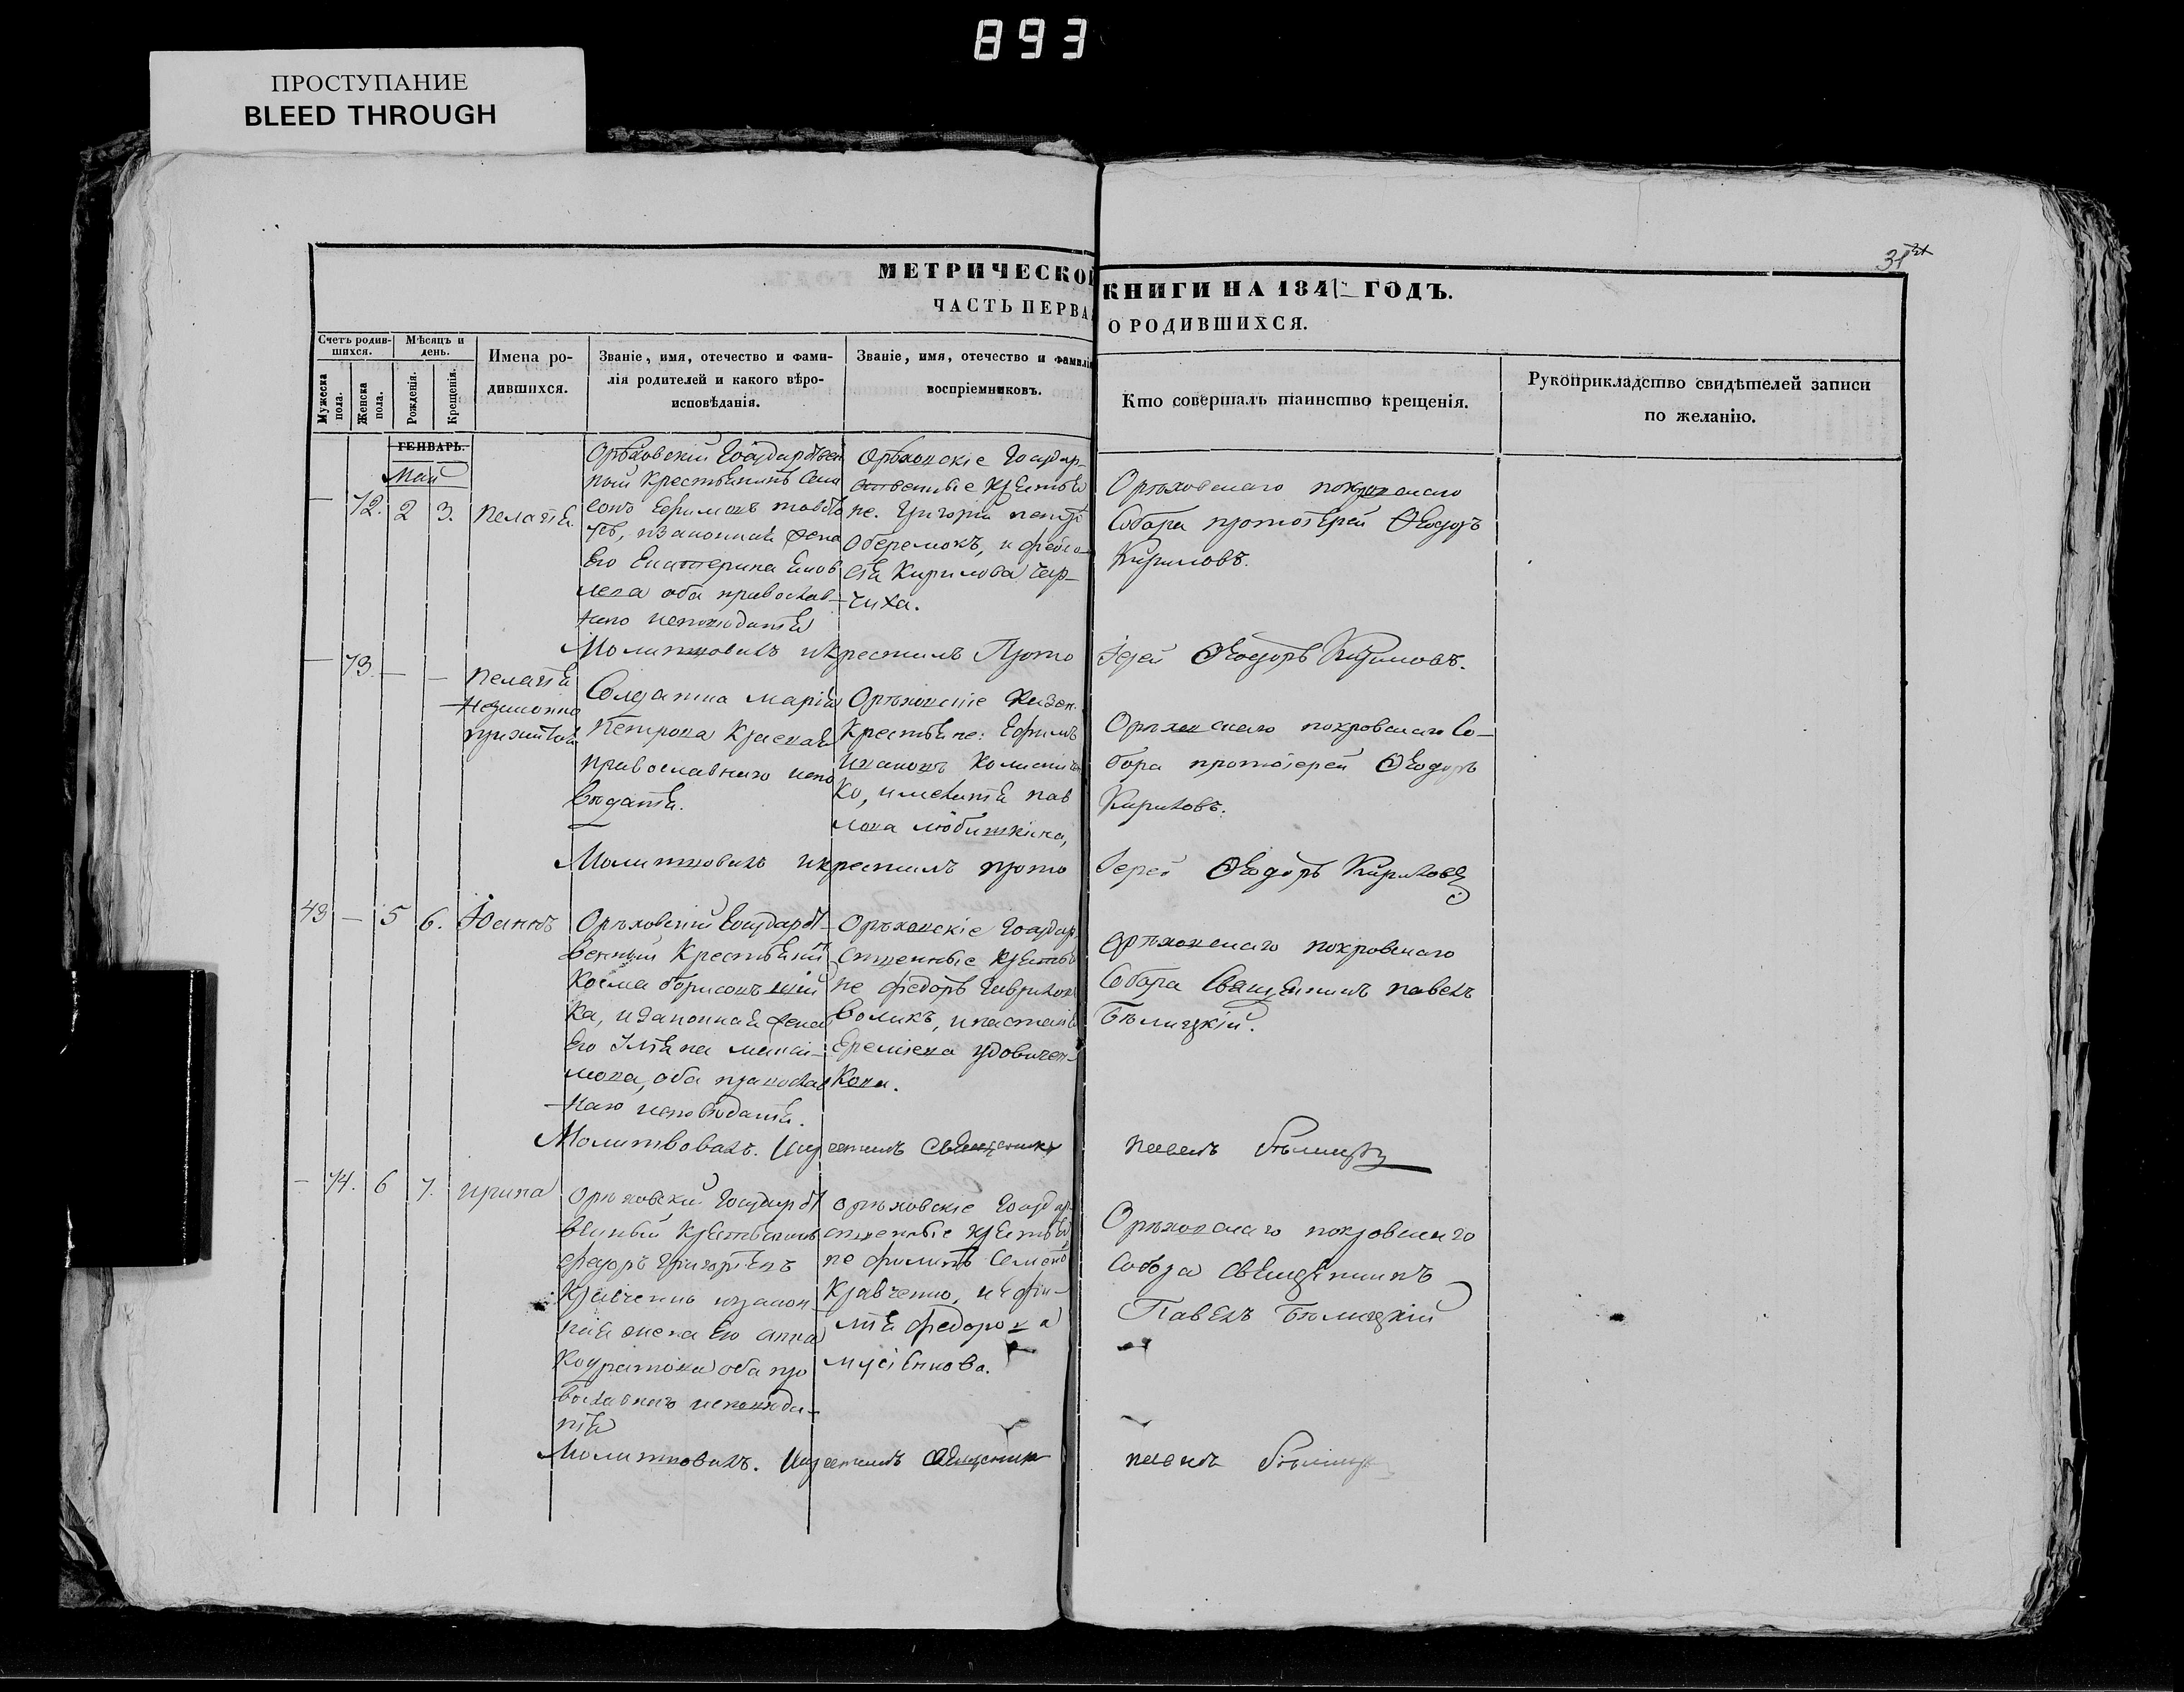 893
ПРОСТУПАНИЕ
BLEED THROUGH
МЕТРИЧЕСКОЙ КНИГИ НА 184 ГОДЪ.
ЧАСТЬ ПЕРВАЯ О РОДИВШИХСЯ.
Счетъ родив-
шихся.
Мѣсяцъ и
день.
Мужеска
пола.
Женска
пола.
Рожденія.
Крещенія.
Имена ро-
дившихся.
Званіе, имя, отечество и фами-
лія родителей и какого вѣро-
исповѣданія.
Званіе, имя, отечество и фамилія
воспріемниковъ.
Кто совершалъ таинство крещенія.
Рукоприкладство свидѣтелей записи
по желанію.
ГЕНВАРЬ.
Май
— 72. 2 3. Пелагія
Орѣховскій Государствен
ный Крестьянинъ
Ефимовъ
законная жена
Его Екатерина
оба православ-
наго исповѣданія
Орѣховскіе Государ-
ственные крестья
не. Григорій
Оберемокъ, и Феодо-
сія Кирилова
чиха.
Орѣховскаго покровскаго
Собора протоіерей Ѳеодоръ
Кириловъ.
Молитвовалъ и крестилъ Прото Іерей Ѳеодоръ Кириловъ.
— 73. — — Пелагія
незаконно
прижитая
Солдатка Марія
Петрова
православнаго испо
вѣданія.
Орѣховскіе
Крестьяне: Ефимъ
Ивановъ
ко, и Мелатія Пав
лова
Орѣховскаго покровскаго Со-
бора протоіерей Ѳеодоръ
Кириловъ.
Молитвовалъ и крестилъ прото Іерей Ѳеодоръ Кириловъ
49 — 5 6. Іоаннъ
Орѣховскій Государст-
венный Крестьянинъ
Косма Борисовъ
ка, и законная жена
Его
мова, оба православ
наго исповѣданія.
Орѣховскіе Государ
ственные крестья
не Федоръ Гавриловъ
Воликъ, и Настасія
Еремѣева Удовичен-
кова.
Орѣховскаго покровскаго
Собора Священникъ Павелъ
Бѣлицкій.
Молитвовалъ. и крестилъ Священникъ Павелъ
— 74. 6 7. Ирина
Орѣховскій Государст
венный Крестьянинъ
Федоръ Григоріевъ
Кравченко и закон
ная жена Его Анна
Кодратова оба пра
вославнаго исповѣда-
нія
Орѣховскіе Государ
ственные крестья
не Филипъ Семеновъ
Кравченко, и Ефи-
мія Федорова
Мусіенкова.
Орѣховскаго покровскаго
Собора Священникъ
Павелъ Бѣлицкій
Молитвовалъ. и крестилъ Священникъ Павелъ